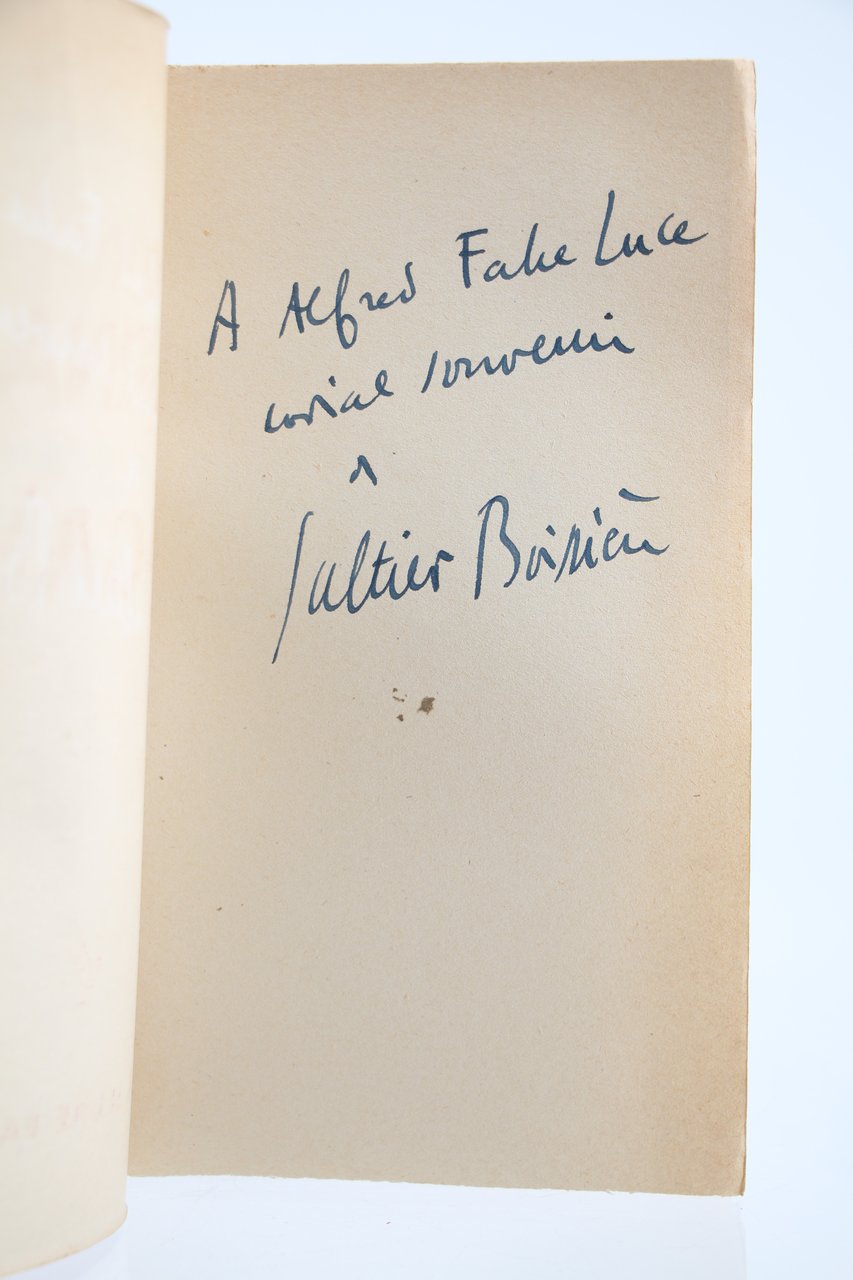 A Alfred Fabre Luce
cordial souvenir
Galtier Boissière